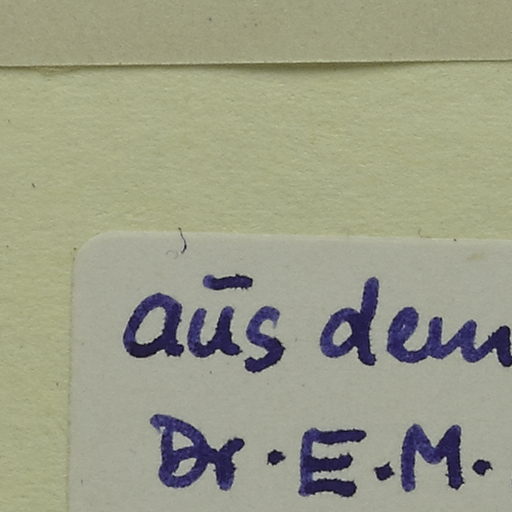 aūs dem
Dr. E. M.